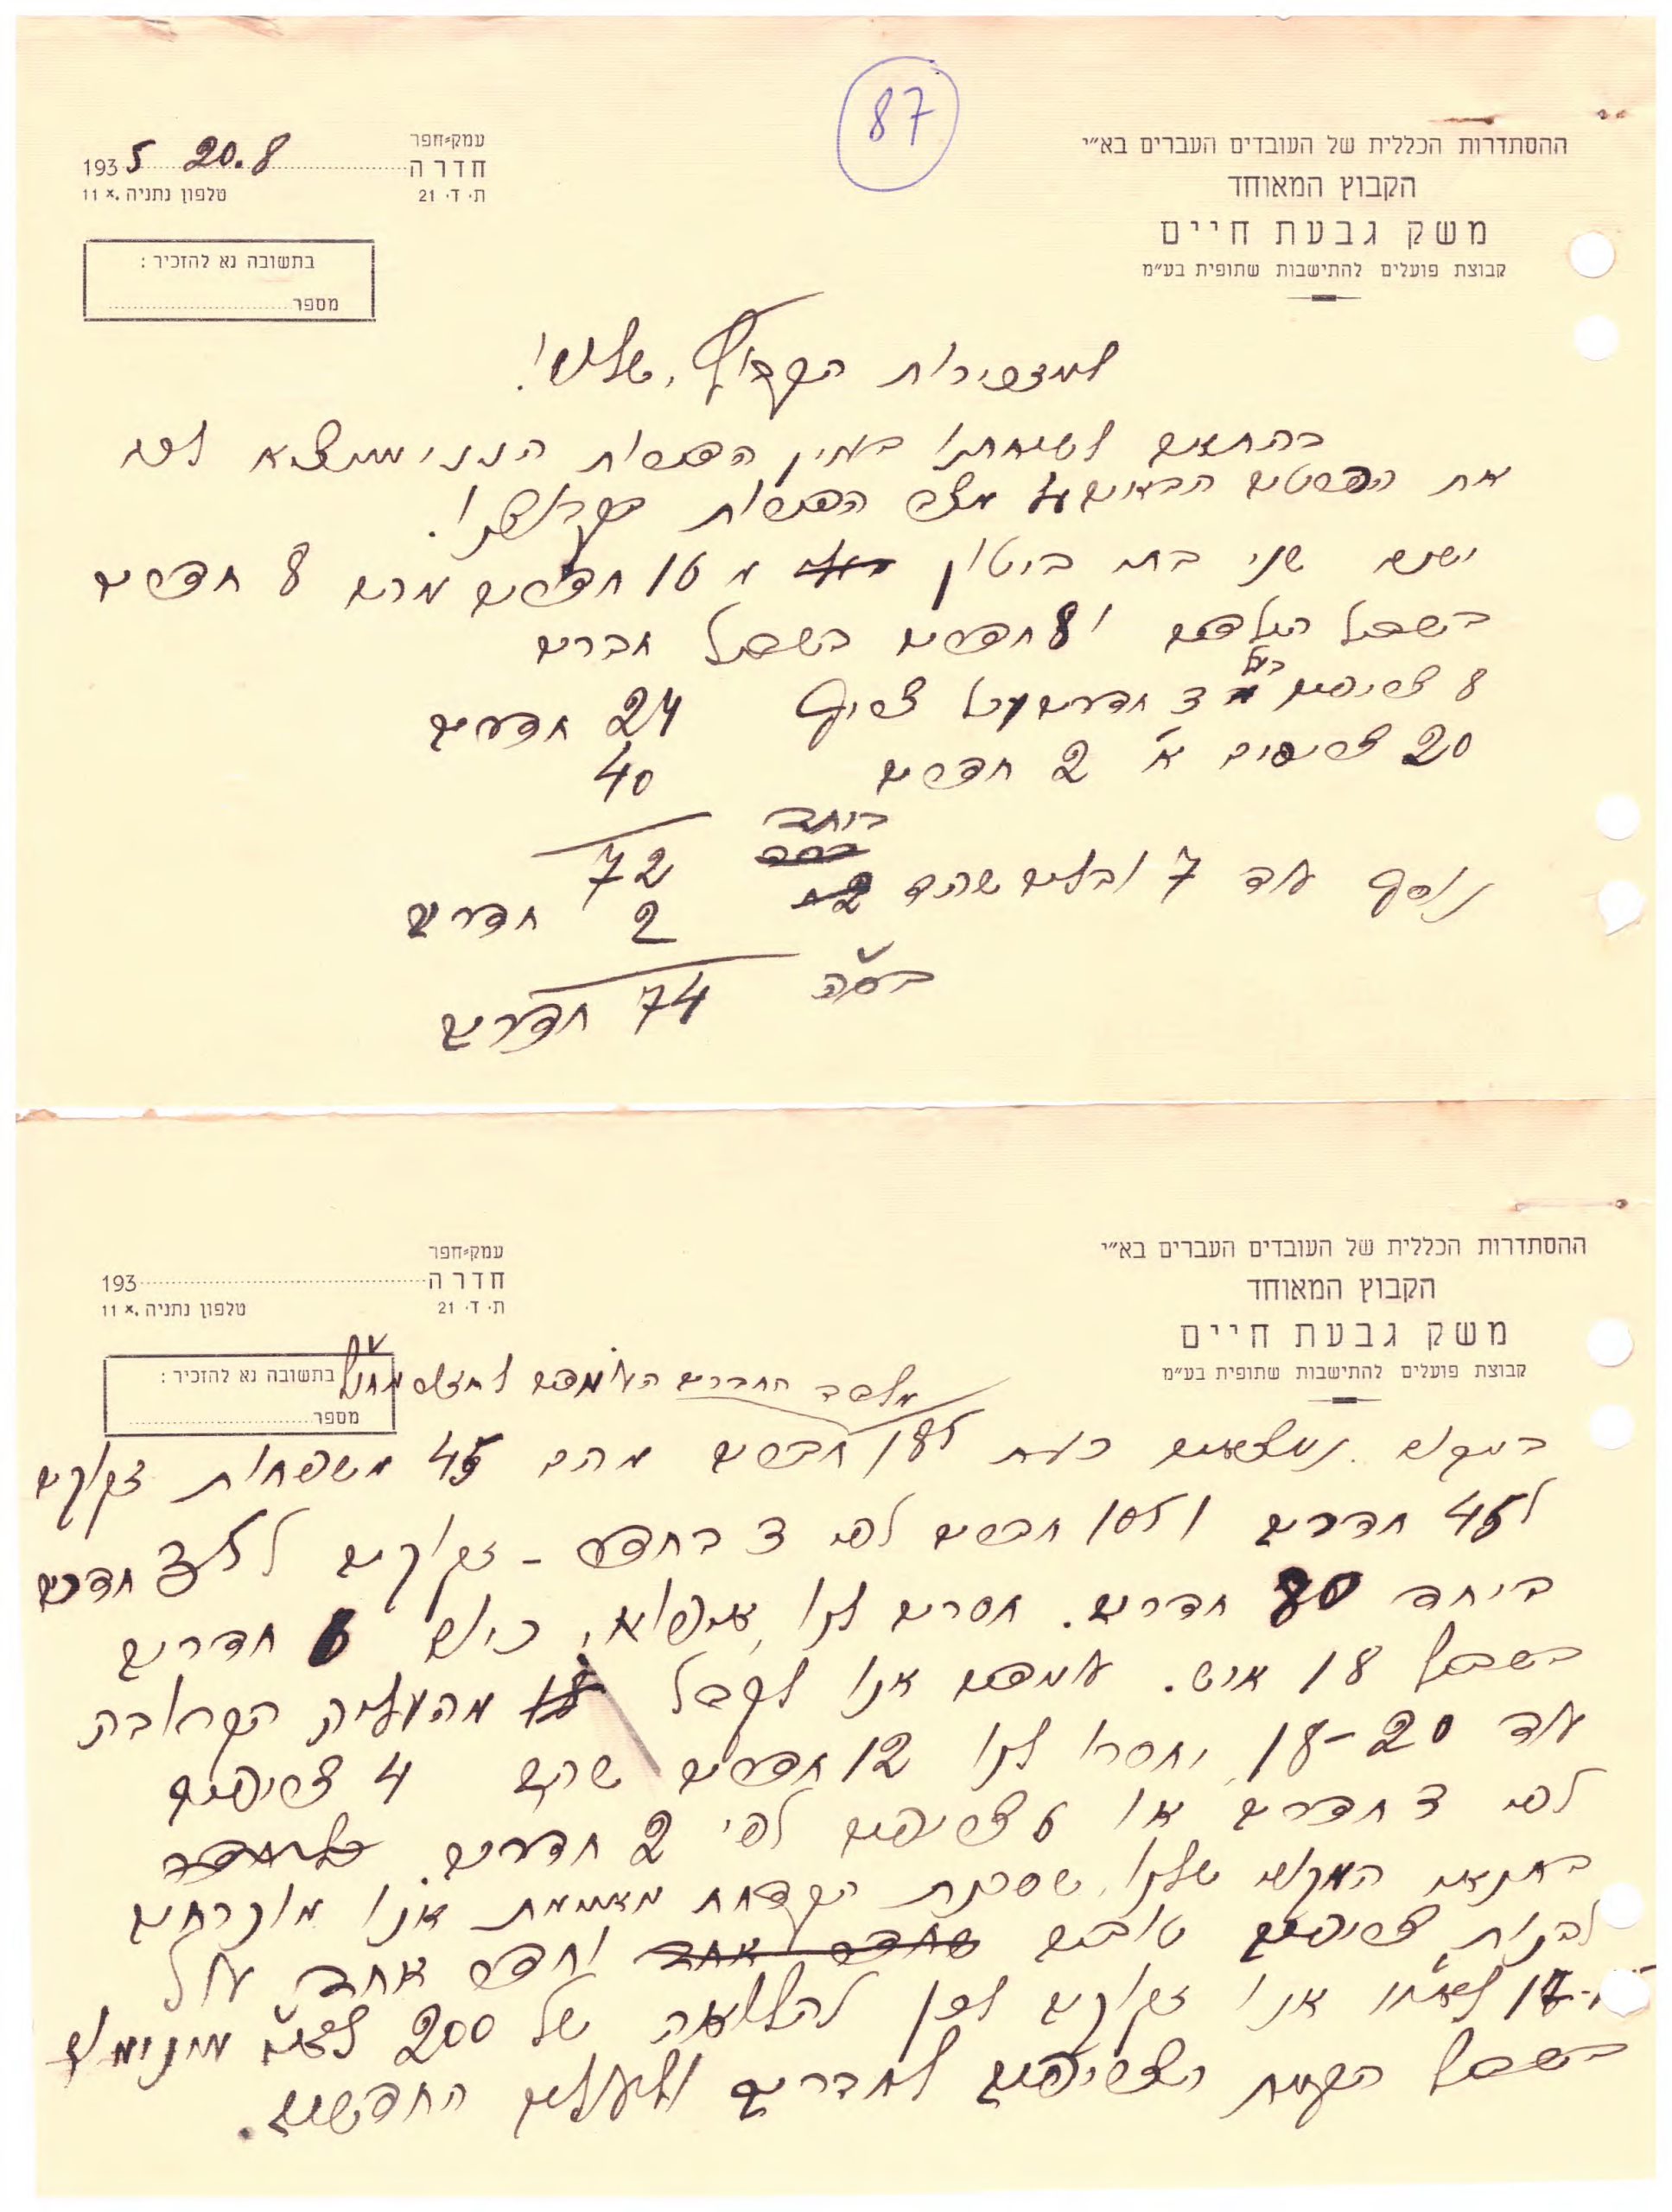 87
ההסתדרות הכללית של העובדים העברים בא״י
הקבוץ המאוחד
משק גבעת חיים
קבוצת פועלים להתישבות שתופית בע״מ
עמק-חפר
חדרה 20.8 1935
ת. ד. 21 טלפון נתניה x. 11
בתשובה נא להזכיר:
מספר
למזכירות הקבוץ, שלום!
בהתאם לשיחתנו בענין הפנסות הנני ממציא לכם
את הפרטים הבאים על מצב הפנסות בקבוצתנו.
ישנם שני בתי ביטון מ 16 חדרים מהם 8 חדרים
בשביל הילדים ו 8 חדרים בשביל חברים
8 צריפים בני 3 חדרים כל צריף 24 חדרים
20 צריפים א 2 חדרים 40
ביחד 72
נוסף עוד 7 אהלים שהם 2 חדרים
בס״ה 74 חדרים
ההסתדרות הכללית של העובדים העברים בא״י
הקבוץ המאוחד
משק גבעת חיים
קבוצת פועלים להתישבות שתופית בע״מ
עמק-חפר
חדרה 193
ת. ד. 21 טלפון נתניה x. 11
בתשובה נא להזכיר:
מספר
מלבד החברים העומדים לחזור מחו״ל
במקום נמצאים כעת 185 חברים מהם 45 משפחות זקוקים
ל 45 חדרים ו 105 חברים לפי 3 בחדר - זקוקים ל 35 חדרים
ביחד 80 חדרים. חסרים לנו, איפוא, כיום 6 חדרים
בשביל 18 איש. עומדים אנו לקבל מהעליה הקרובה
עוד 18-20, יחסרו לנו 12 חדרים שהם 4 צריפים
לפי 3 חדרים או 6 צריפים לפי 2 חדרים.
בתנאי המקום שלנו, שסכנת הקדחת מאיימת אנו מוכרחים
לבנות צריפים טובים וחדר אחד עולל
לא״י אנו זקוקים לכן להלואה של 200 לא״י מינימום
בשביל הקמת הצריפים לחדרים ולעולים החדשים.